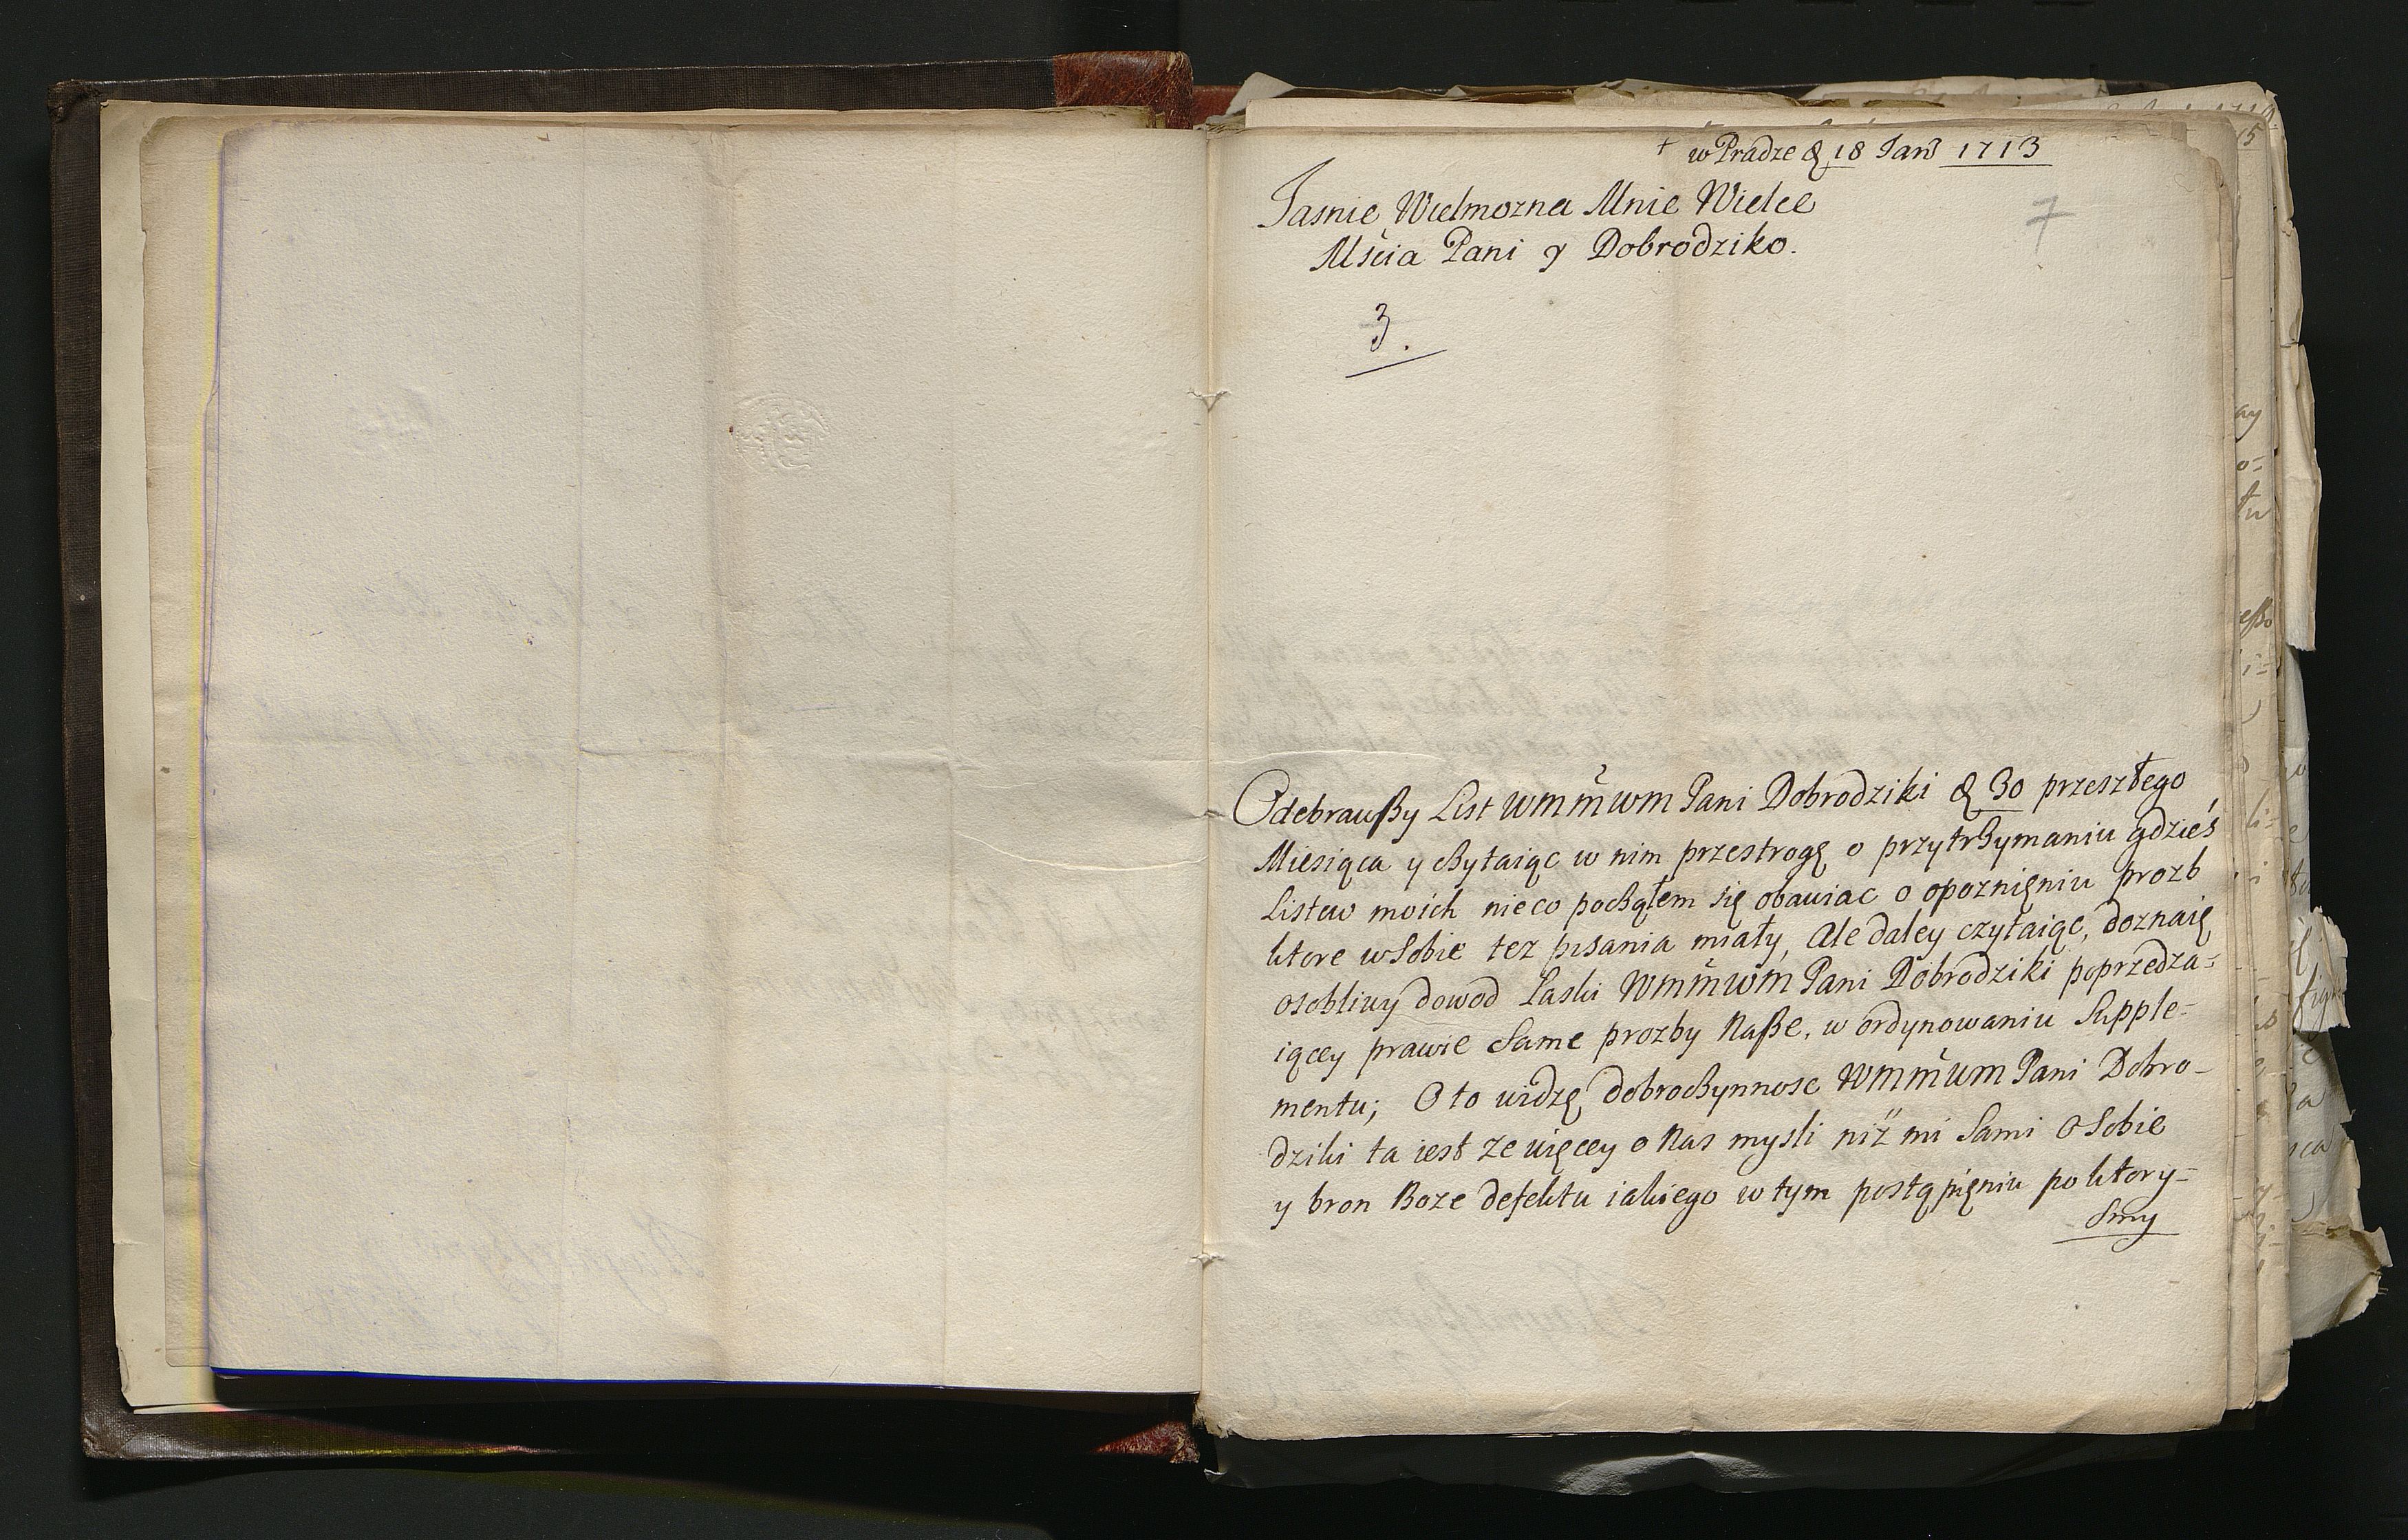 + w Pradze d 18 Jan 1713
Jasnie Wielmozna Mnie Wielce
Mścia Pani y Dobrodziko.
7
3.
Odebrawßy List WMMWM Pani Dobrodziki d 30 przeszłego
Miesiąca y czytaiąc w nim przestrogę o przytrzymaniu gdzieś
Listow moich nieco począłem się obawiac o opoznięniu prozb
ktore w Sobie tez pisania miały, Ale daley czytaiąc, doznaię
osobliwy dowod Łaski WMMWM Pani Dobrodziki poprzedza=
iącey prawie Same prozby Naße, w ordynowaniu Supple=
mentu; Oto widzę dobroczynnosc WMMWM Pani Dobro-
dziki ta iest ze więcey o Nas mysli niż mi Sami o Sobie
y bron Boze defektu iakiego w tym postąpięniu po ktory=
Smy